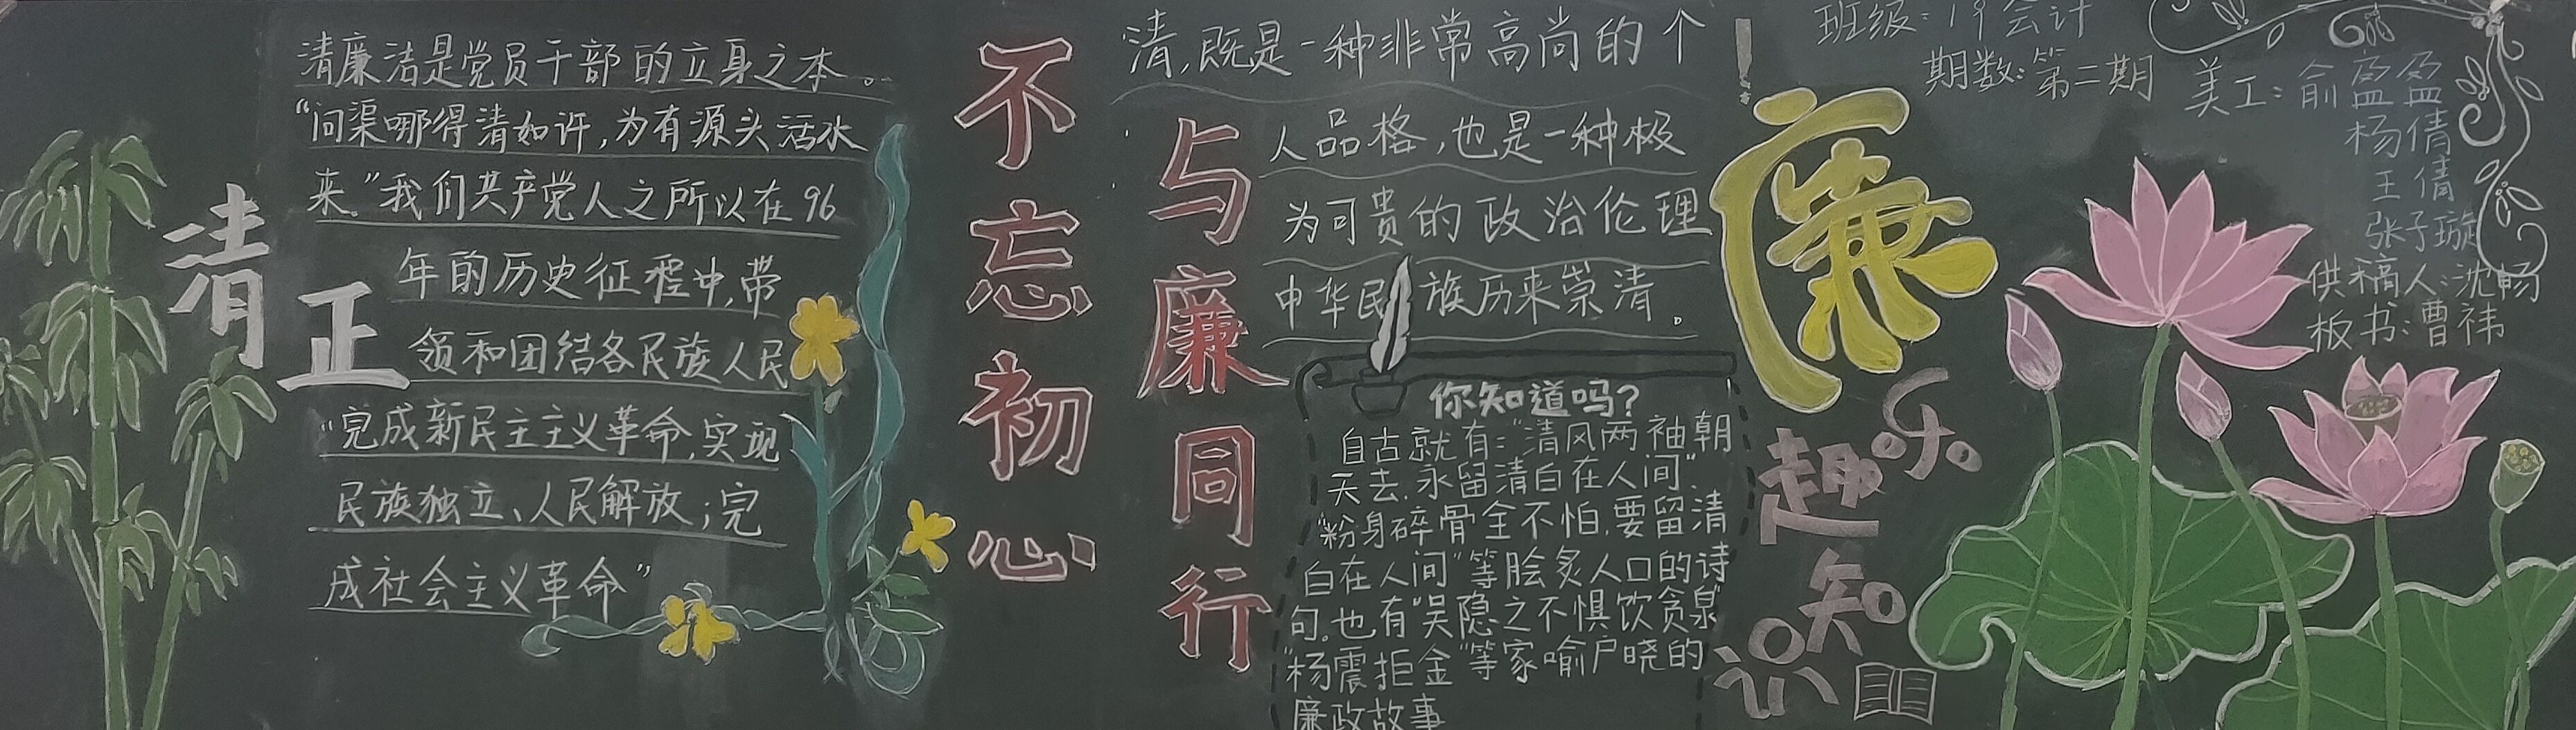 清正
清廉洁是党员干部的立身之本。
“问渠哪得清如许,为有源头活水
来.”我们共产党人之所以在96
年的历史征程中,带
领和团结各民族人民
“完成新民主主义革命,实现
民族独立、人民解放;完
成社会主义革命”
不忘初心
与廉同行
清,既是一种非常高尚的个
人品格,也是一种极
为可贵的政治伦理
中华民族历来崇清。
你知道吗?
自古就有:“清风两袖朝
天去,永留清白在人间”.
“粉身碎骨全不怕,要留清
白在人间”等脍炙人口的诗
句。也有“吴隐之不惧饮贪泉”
“杨震拒金”等家喻户晓的
廉政故事
廉
乐
趣
知
识
班级:19会计
期数:第二期
美工:俞盈盈
杨倩
王倩
张子璇
供稿人:沈畅
板书:曹祎